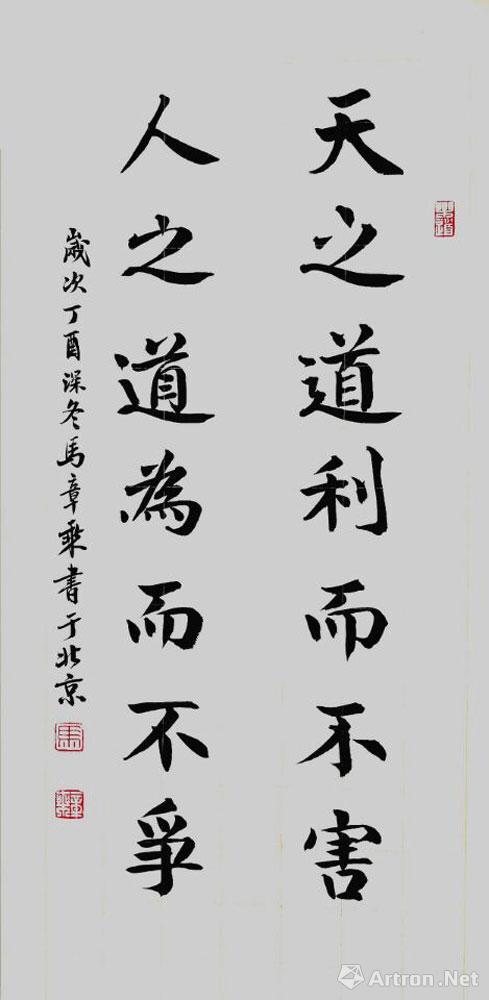 天之道利而不害
人之道為而不爭
歲次丁酉深冬馬章乘書于北京
Artron.Net